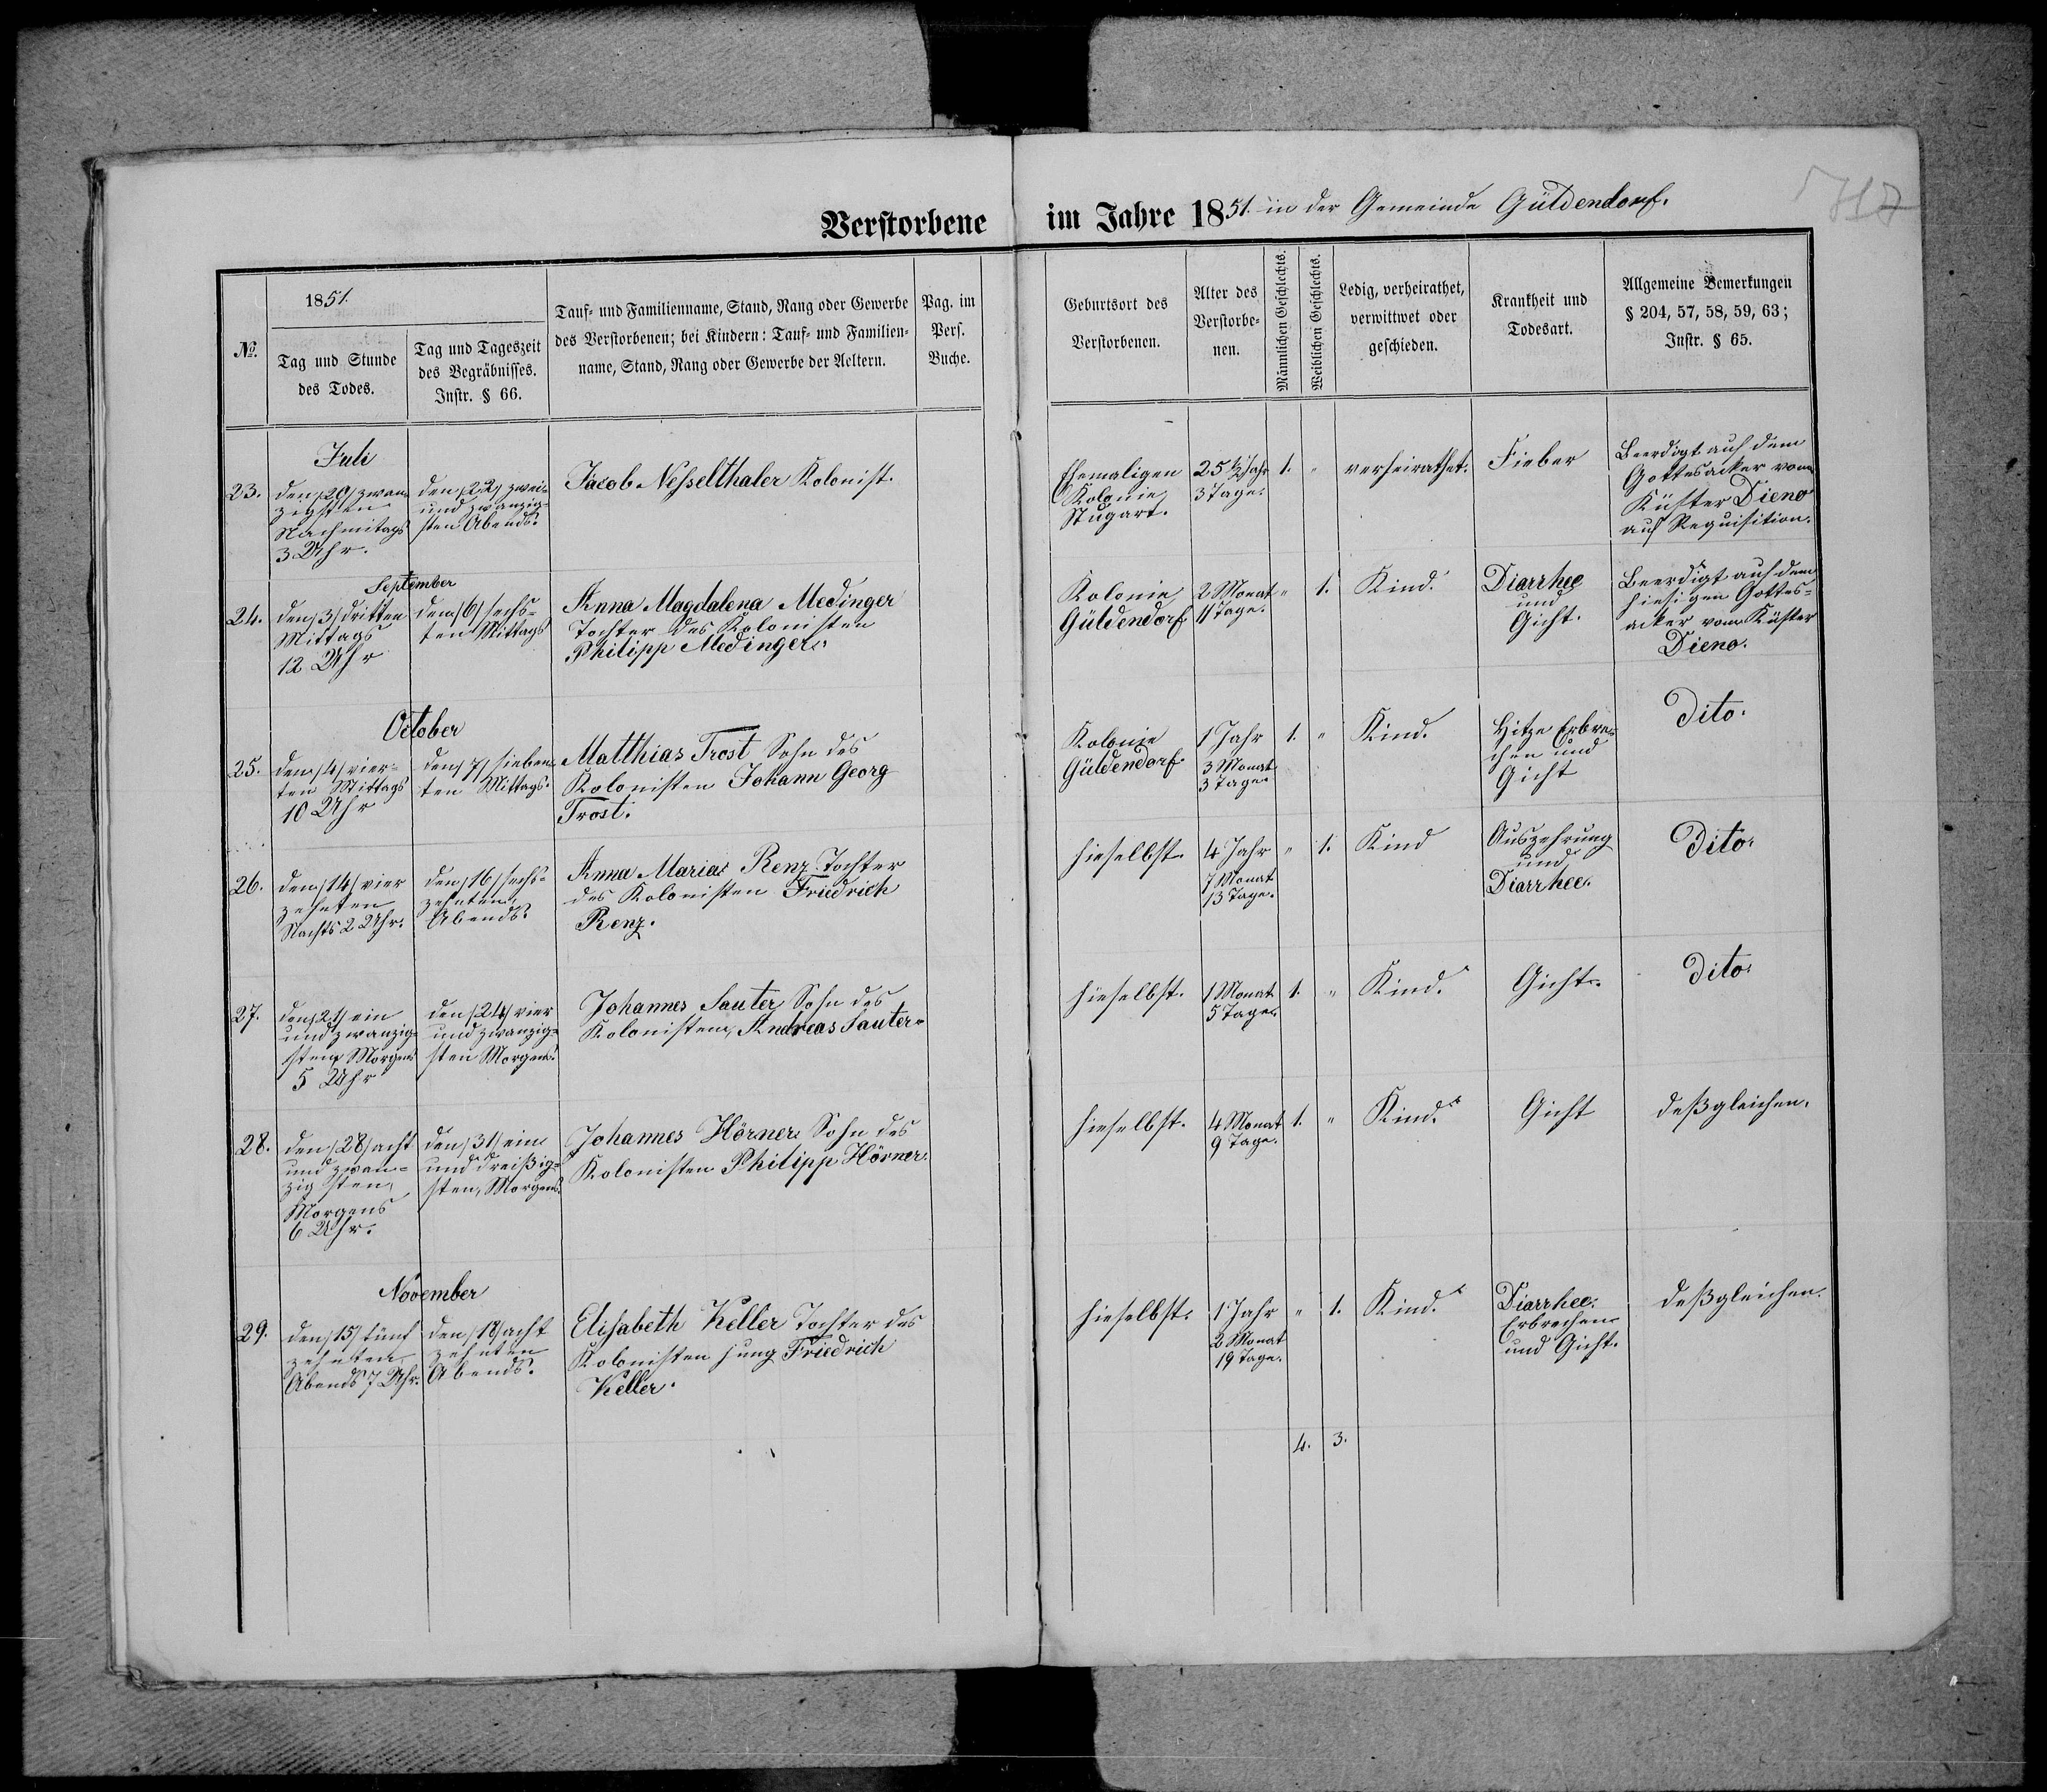 Verstorbene im Jahre 1851. in der Gemeinde Güldendorf.
No.
1851.
Tag und Stunde
des Todes.
Tag und Tageszeit
des Begräbnisses.
Instr. § 66.
Tauf- und Familienname, Stand, Rang oder Gewerbe
des Verstorbenen; bei Kindern: Tauf- und Familien-
name, Stand, Rang oder Gewerbe der Aeltern.
Pag. im
Pers.
Buche.
Geburtsort des
Verstorbenen.
Alter des
Verstorbe-
nen.
Männlichen Geschlechts.
Weiblichen Geschlechts.
Ledig, verheirathet,
verwittwet oder
geschieden.
Krankheit und
Todesart.
Allgemeine Bemerkungen
§ 204, 57, 58, 59, 63;
Instr. § 65.
Juli
23.
den /20/ zwan
zigsten
Nachmitags
3 Uhr.
den /22/ zwei-
und zwanzig-
sten Abends.
Jacob Nesselthaler Kolonist.
Ehemaligen
Kolonie
Stugart.
25 1/2 Jahr
3 Tage.
1.
"
verheirathet.
Fieber
Beerdigt auf dem
Gottesacker vom
Küster Dieno
auf Requisition.
September
24.
den /3/ dritten
Mittags
12 Uhr
den /6/ sechs-
ten Mittags
Anna Magdalena Medinger
Tochter des Kolonisten
Philipp Medinger.
Kolonie
Güldendorf
2 Monat
11 Tage.
"
1.
Kind.
Diarrhee
und
Gicht.
Beerdigt auf dem
hiesigen Gottes-
acker vom Küster
Dieno.
October
25.
den /4/ vier-
ten Mittags
10 Uhr
den /7/ sieben
ten Mittags.
Matthias Trost Sohn des
Kolonisten Johann Georg
Trost.
Kolonie
Güldendorf.
1 Jahr
3 Monat
3 Tage.
1.
"
Kind.
Hitze Erbre-
chen und
Gicht
Dito.
26.
den /14/ vier
zehnten
Nachts 2 Uhr.
den /16/ sechs-
zehnten
Abends.
Anna Maria Renz Tochter
des Kolonisten Friedrich
Renz.
hieselbst.
4 Jahr
7 Monat
13 Tage.
"
1.
Kind
Auszehrung
und
Diarrhee.
Dito.
27.
den /21/ ein
und zwanzig-
sten Morgens
5 Uhr
den /24/ vier
und zwanzig-
sten Morgens.
Johannes Sauter Sohn des
Kolonisten Andreas Sauter.
hieselbst.
1 Monat
5 Tage.
1.
"
Kind.
Gicht.
Dito.
28.
den /28/ acht
und zwan-
zigsten,
Morgens
6 Uhr.
den /31/ ein
und dreißig-
sten, Morgens.
Johannes Hörner Sohn des
Kolonisten Philipp Hörner.
hieselbst.
4 Monat
9 Tage.
1.
"
Kind.
Gicht
deßgleichen.
November
29.
den /15/ fünf
zehnten
Abends 7 Uhr.
den /18/ acht
zehnten
Abends.
Elisabeth Keller Tochter des
Kolonisten jung Friedrich
Keller.
hieselbst.
1 Jahr
2 Monat
19 Tage.
"
1.
Kind.
Diarrhee.
Erbrechen
und Gicht.
deßgleichen.
4.
3.